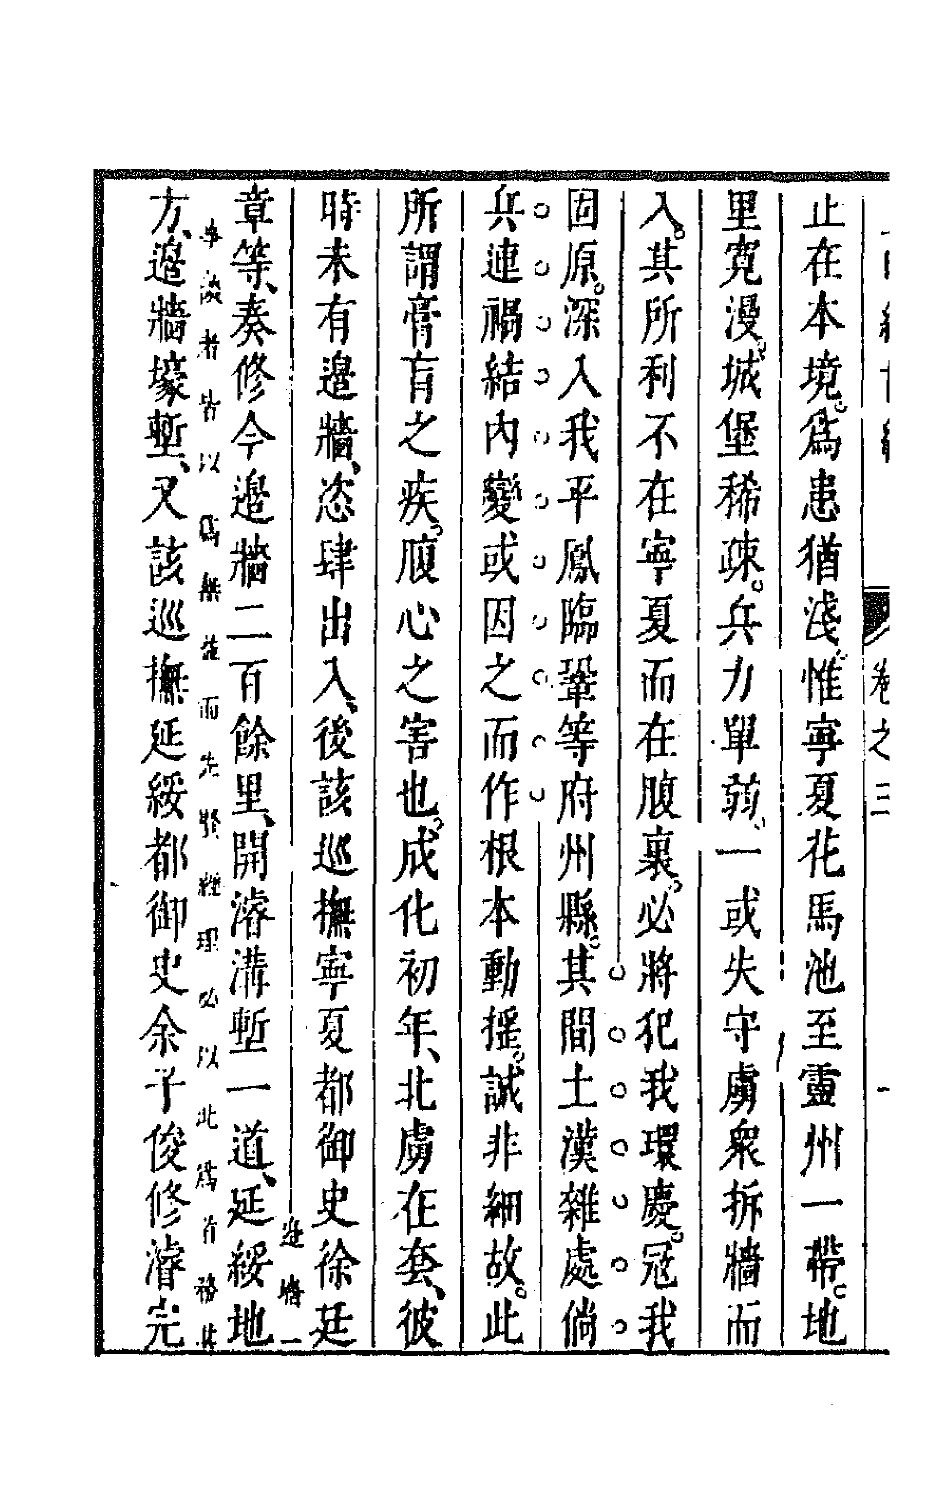 止在本境爲患猶淺惟寧夏花馬池至靈州一帶地
里寬漫城堡稀疎兵力單弱一或失守虜衆拆牆而
入其所利不在寧夏而在腹裏必將犯我環慶寇我
固原深入我平鳳臨鞏等府州縣其間土漢雜處倘
兵連禍結內變或因之而作根本動搖誠非細故此
所謂膏肓之疾腹心之害也成化初年北虜在套彼
時未有邊牆恣肆出入後該巡撫寧夏都御史徐廷
邊牆一
章等奏修今邊牆二百餘里開濬溝塹一道延綏地
談者皆以爲無益而先賢經理必以此爲首務
方邊牆壕塹又該巡撫延綏都御史余子俊修濬完
卷之二